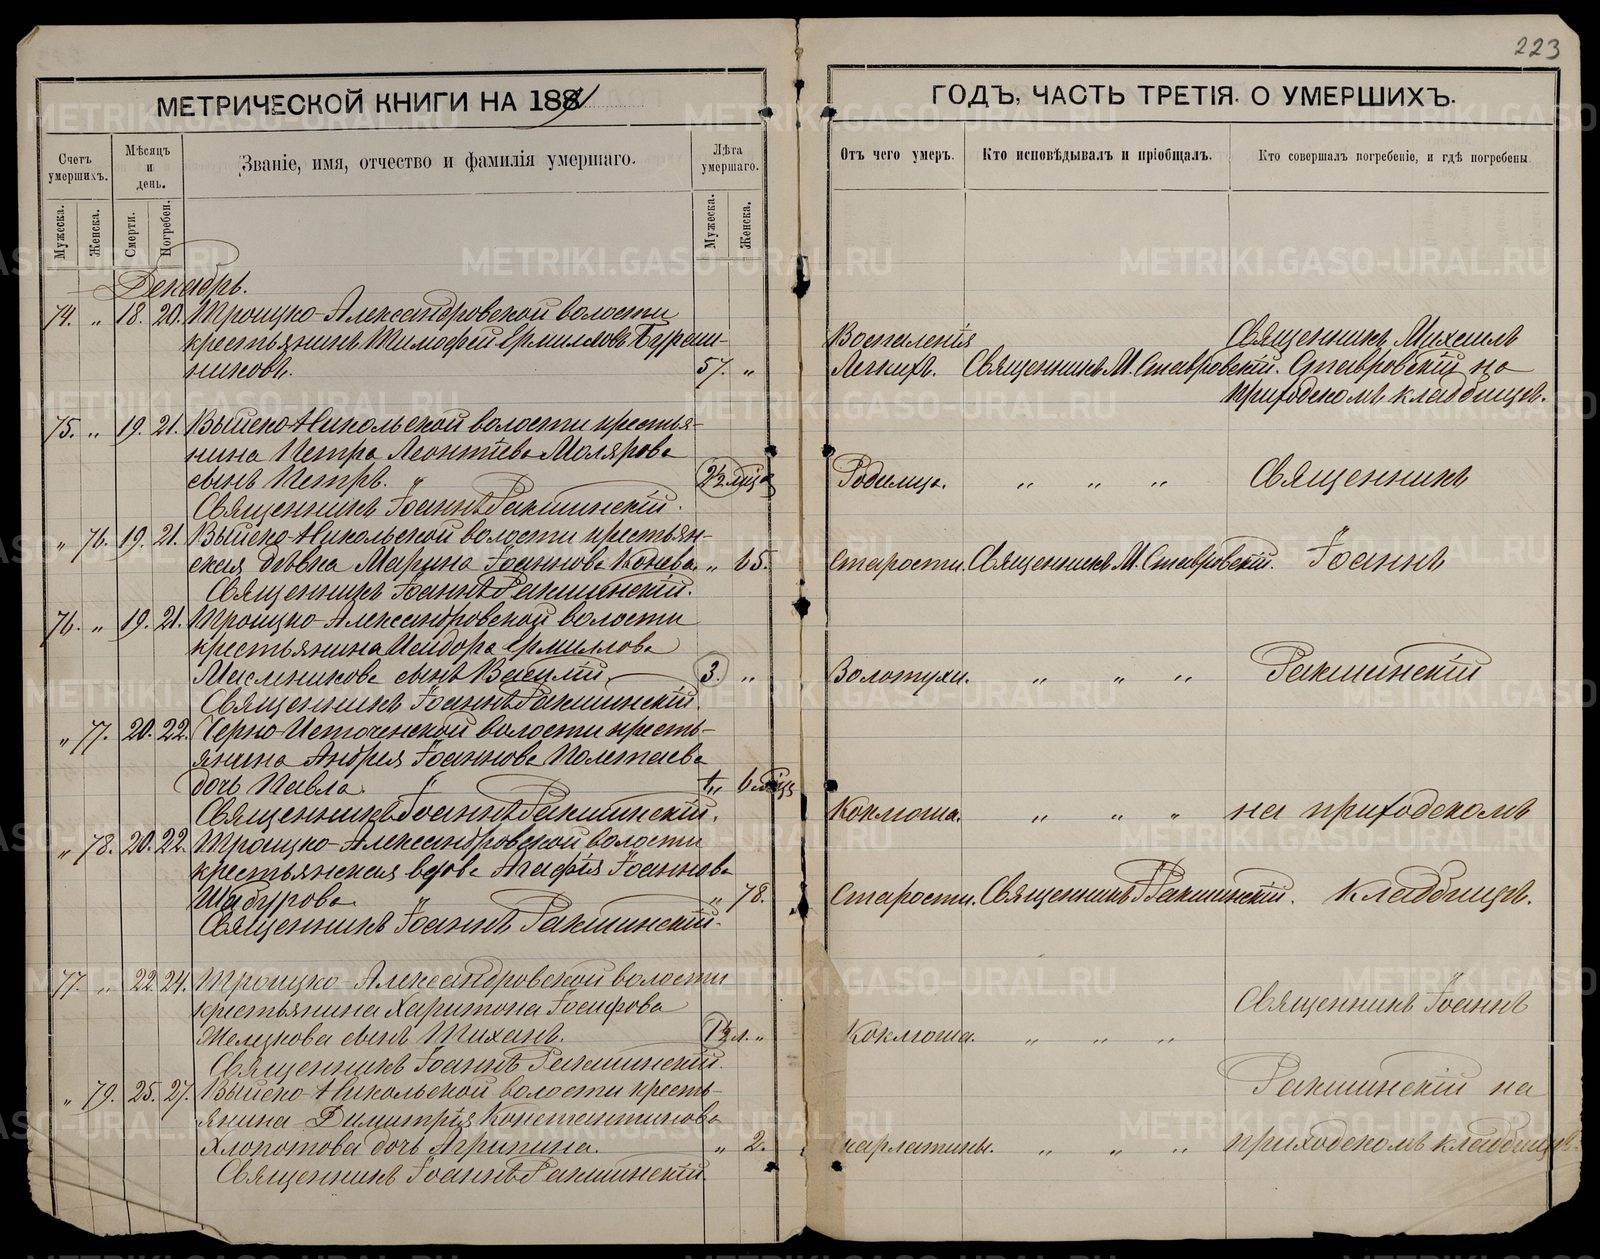 223
МЕТРИЧЕСКОЙ КНИГИ НА 188
ГОДЪ, ЧАСТЬ ТРЕТІЯ. О УМЕРШИХЪ.
Счетъ умершихъ.
Мѣсяцъ и день.
Званіе, имя, отчество и фамилія умершаго.
Лѣта умершаго.
Отъ чего умеръ.
Кто исповѣдывалъ и пріобщалъ.
Кто совершалъ погребеніе, и гдѣ погребены
Мужеска.
Женска.
Смерти.
Погребен.
Мужеска.
Женска.
Декабрь.
74. „ 18. 20. Троицко-Александровской волости
крестьянинъ Тимофей Ермиловъ
никовъ. 57. „
Воспаленія
Легкихъ. Священникъ М. Ставровскій.
Священникъ Михаилъ
Ставровскій на
приходскомъ кладбищѣ.
75. „ 19. 21. Выйско-Никольской волости крестья-
нина Петра Леонтіева Молярова
сынъ Петръ. 2½ мца
Родимца. „ „ „ Священникъ
Священникъ Іоаннъ Ракшинскій.
„ 76. 19. 21. Выйско-Никольской волости крестьян-
ская дѣвка Марина Іоаннова Конева. „ 65.
Старости. Священникъ М. Ставровскій. Іоаннъ
Священникъ Іоаннъ Ракшинскій.
76. „ 19. 21. Троицко-Александровской волости
крестьянина Исидора Ермилова
Масленникова сынъ Василій. 3. „
Золотухи. „ „ „ Ракшинскій
Священникъ Іоаннъ Ракшинскій.
„ 77. 20. 22. Черно-Источенской волости кресть-
янина Андрея Іоаннова Полетаева
дочь Павла 6 мцъ
Коклюша. „ „ „ на приходскомъ
Священникъ Іоаннъ Ракшинскій.
„ 78. 20. 22. Троицко-Александровской волости
крестьянская вдова Агафія Іоаннова
Шабурова „ 78.
Старости. Священникъ Ракшинскій. кладбищѣ.
Священникъ Іоаннъ Ракшинскій.
77. „ 22. 24. Троицко-Александровской волости
крестьянина Харитона Іосифова
Желескова сынъ Тиханъ. 1½ л. „
Коклюша. „ „ „
Священникъ Іоаннъ
Священникъ Іоаннъ Ракшинскій.
„ 79. 25. 27. Выйско-Никольской волости кресть-
янина Димитрія Константинова
Хлопотова дочь Агрипина. „ 2.
Скарлатины. „ „ „
Ракшинскій на
приходскомъ кладбищѣ.
Священникъ Іоаннъ Ракшинскій.
METRIKI.GASO-URAL.RU